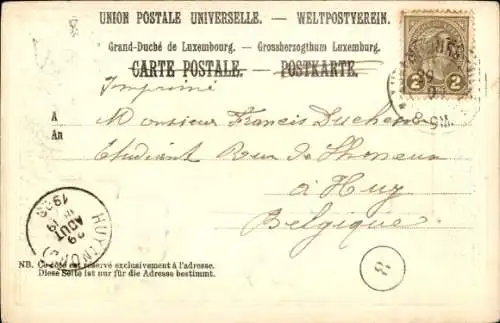 UNION POSTALE UNIVERSELLE. — WELTPOSTVEREIN.
Grand-Duché de Luxembourg. — Grossherzogthum Luxemburg.
CARTE POSTALE. — POSTKARTE.
Imprimé
2 2
A Monsieur Francis
An
Etudiant Rue de
à Huy
Belgique
HUY (NORD)
29
AOUT
19
8
NB. Ce côté est réservé exclusivement à l'adresse.
Diese Seite ist nur für die Adresse bestimmt.